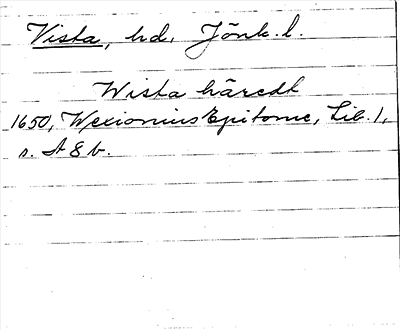 Vista, hd. Jönk. l.
Wista häredt
1650, Wexionius Epitome, Lib. 1,
s. A 8 b.